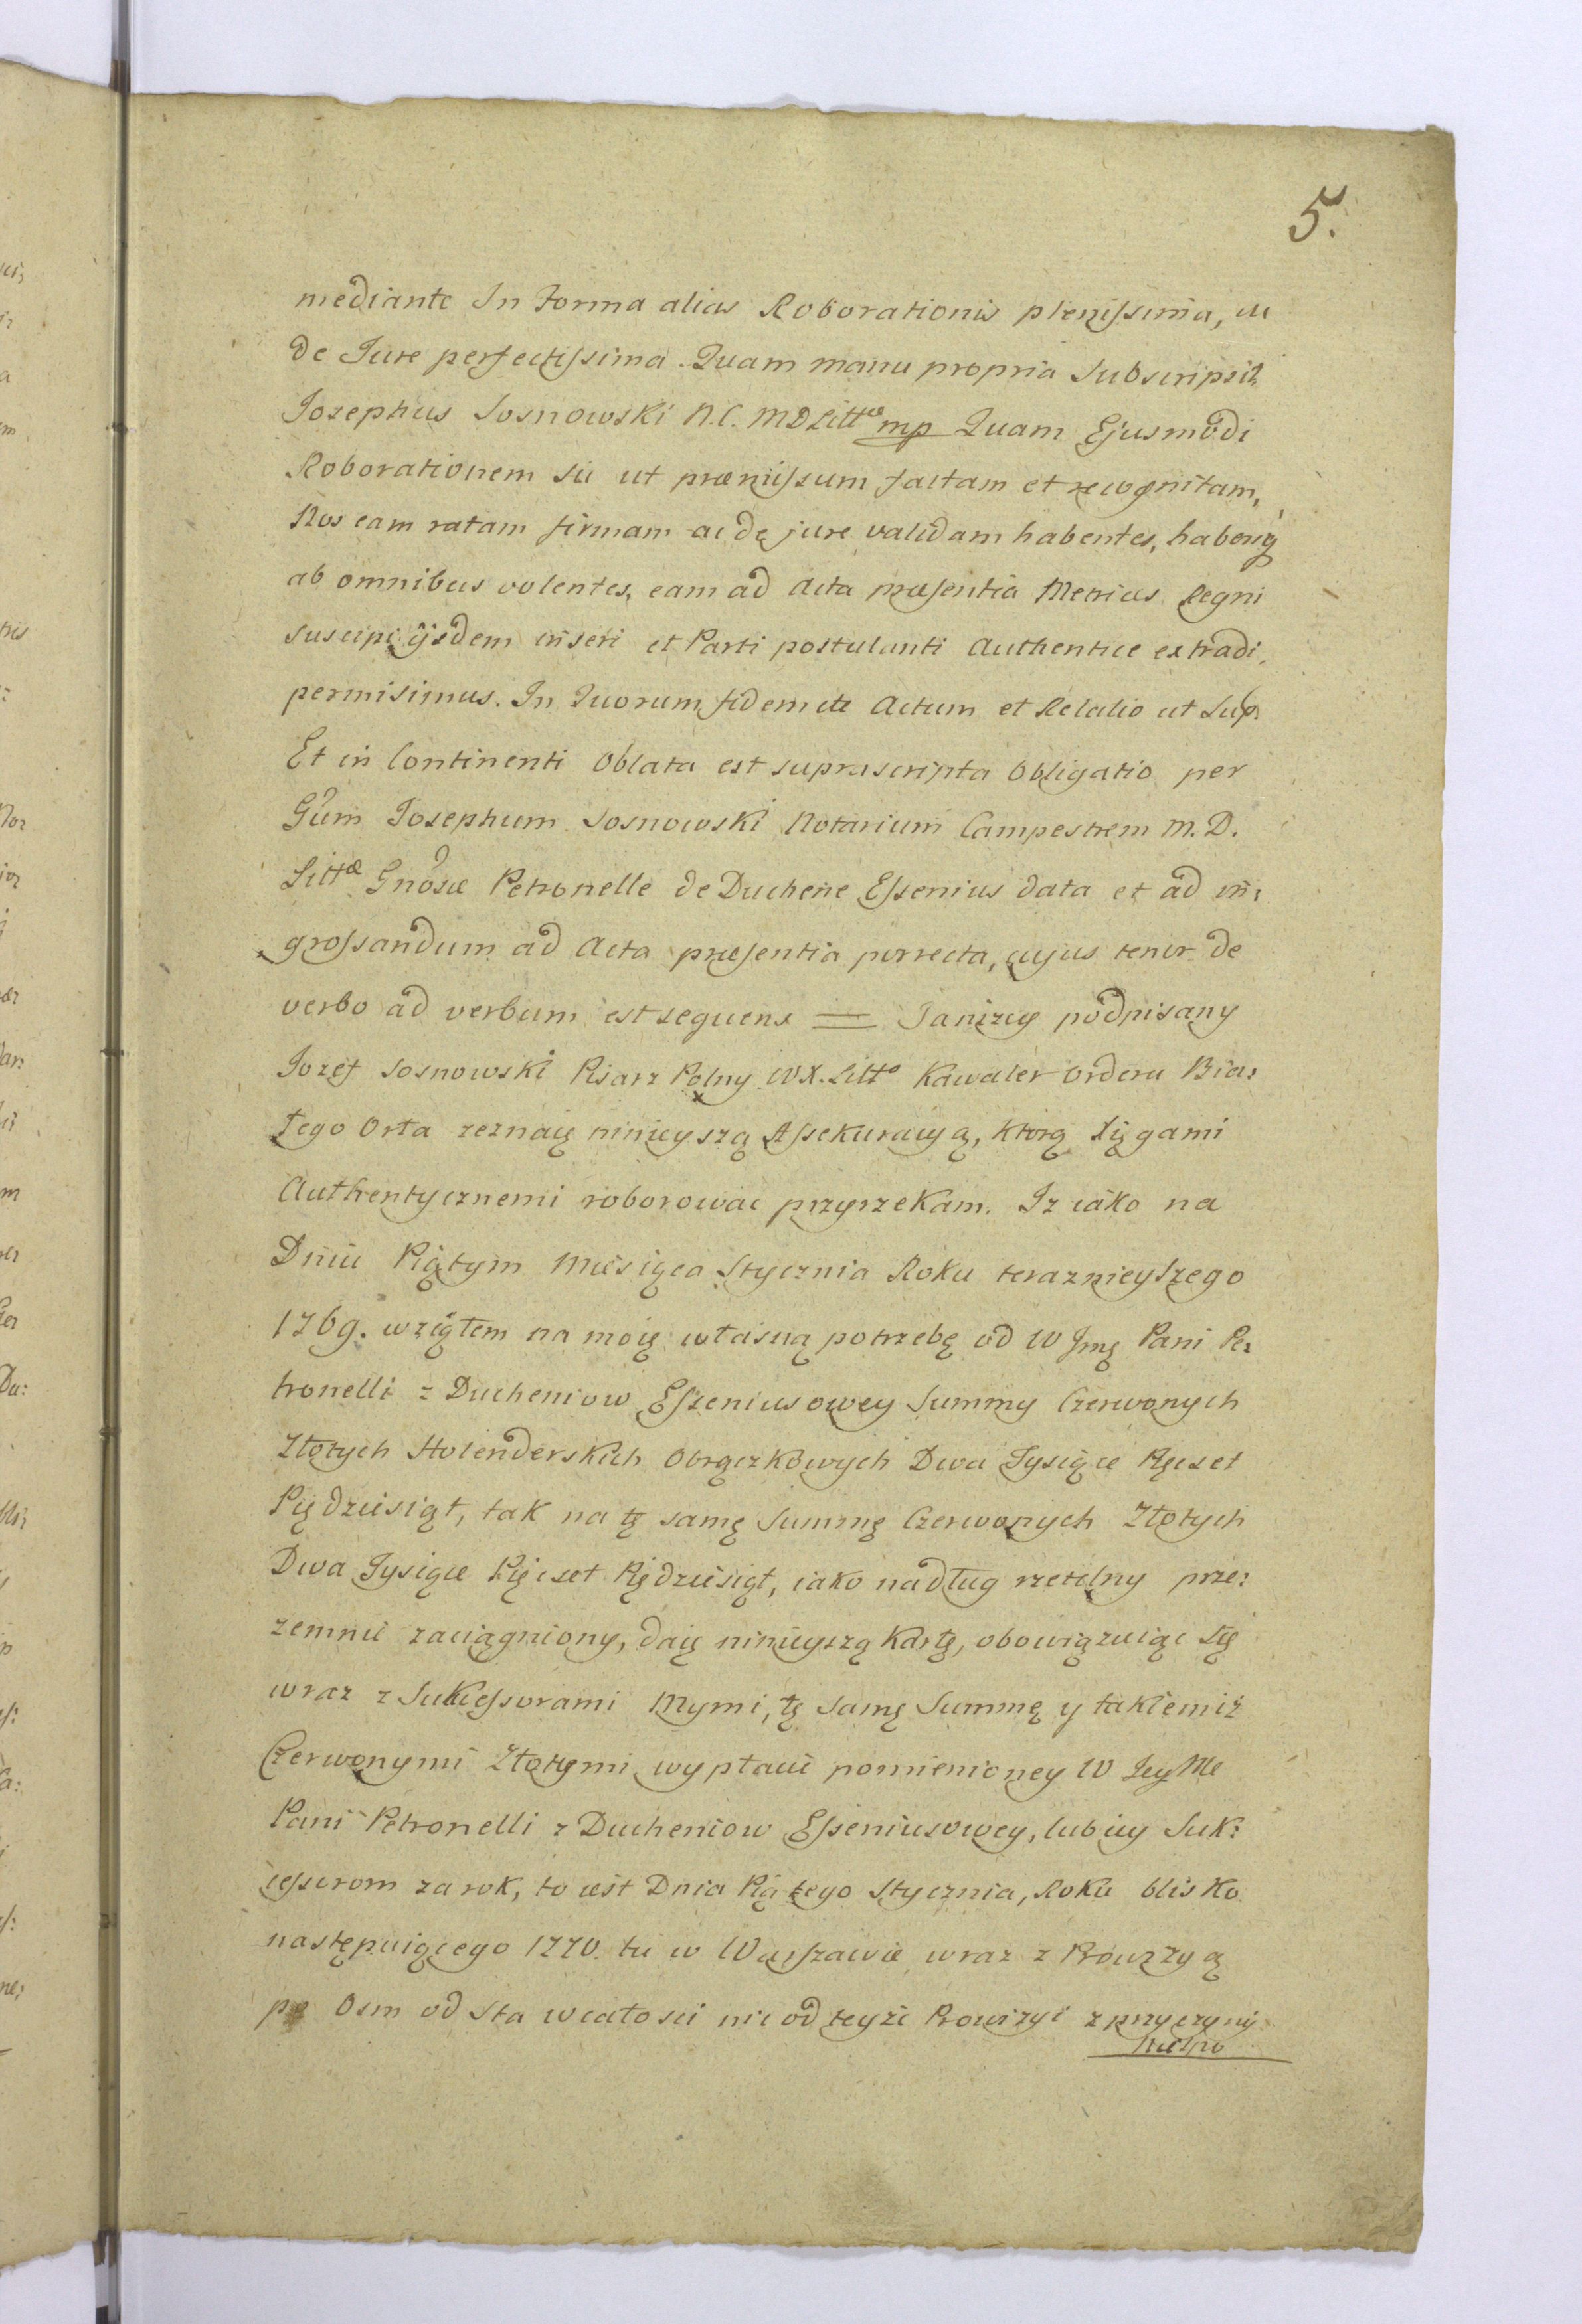 5.
mediante In Forma alias Roborationis plenissima, ac
de Jure perfectissima. Quam manu propria subscripsit
Josephus Sosnowski N.C. MDLittæ mp Quam Ejusmodi
Roborationem sic ut præmissum factam et recognitam,
Nos eam ratam firmam ac de jure validam habentes, haberiq
ab omnibus volentes, eam ad Acta præsentia Metrices Regni
suscipi ijsdem inseri et Parti postulanti Authentice extradi,
permisimus. In Quorum fidem etc Actum et Relatio ut Sup:
Et in Continenti Oblata est suprascripta Obligatio per
Gūm Josephum Sosnowski Notarium Campestrem M. D.
Littæ Gnosæ Petronelle de Duchene Essenius data et ad in:
grossandum ad Acta præsentia porrecta, cujus tenor de
verbo ad verbum est sequens = Ja nizey podpisany
Jozef Sosnowski Pisarz Polny WX. Litto Kawaler Orderu Bia:
łego Orła zeznaię ninieyszą Assekuracyą, ktorą xięgami
Authentycznemi roborowac przyrzekam. Iz iako na
Dniu Piątym Miesiąca Stycznia Roku teraznieyszego
1769. wziąłem na moię własną potrzebę od W Jmę Pani Pe:
tronelli z Ducheniow Esseniusowey Summy Czerwonych
Złotych Holenderskich Obrączkowych Dwa Tysiące Pięcset
Piędziesiąt, tak na tę samę Summę Czerwonych Złotych
Dwa Tysiące Pięcset Piędziesiąt, iako na dług rzetelny prze:
zemnie zaciągniony, daię ninieyszą Kartę, obowiązuiąc się
wraz z Sukcessorami Mymi, tę samę Summę y takiemiz
Czerwonymi Złotymi wypłacic pomienioney W JeyMc
Pani Petronelli z Ducheniow Esseniusowey, lub iey Suk:
cessorom za rok, to iest Dnia Piątego Stycznia, Roku blisko
następuiącego 1770. tu w Warszawie wraz z Prowizyą
po Osm od Sta w całosci nic od teyze Prowizyi z przyczyny